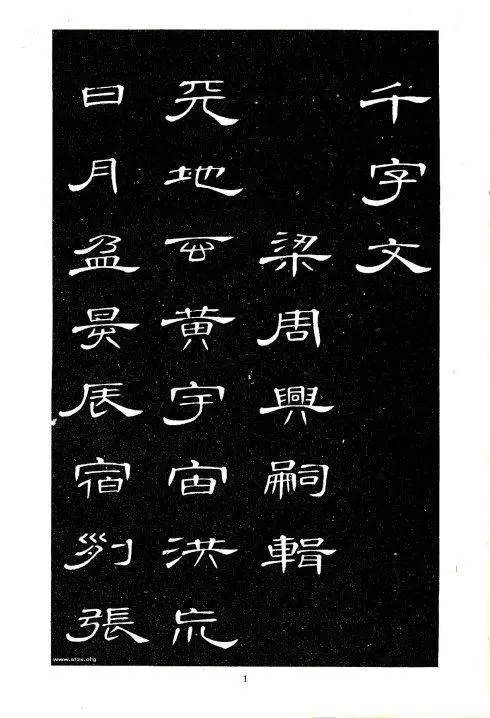 千字文
梁周興嗣輯
天地玄黃宇宙洪荒
日月盈昃辰宿列張
1